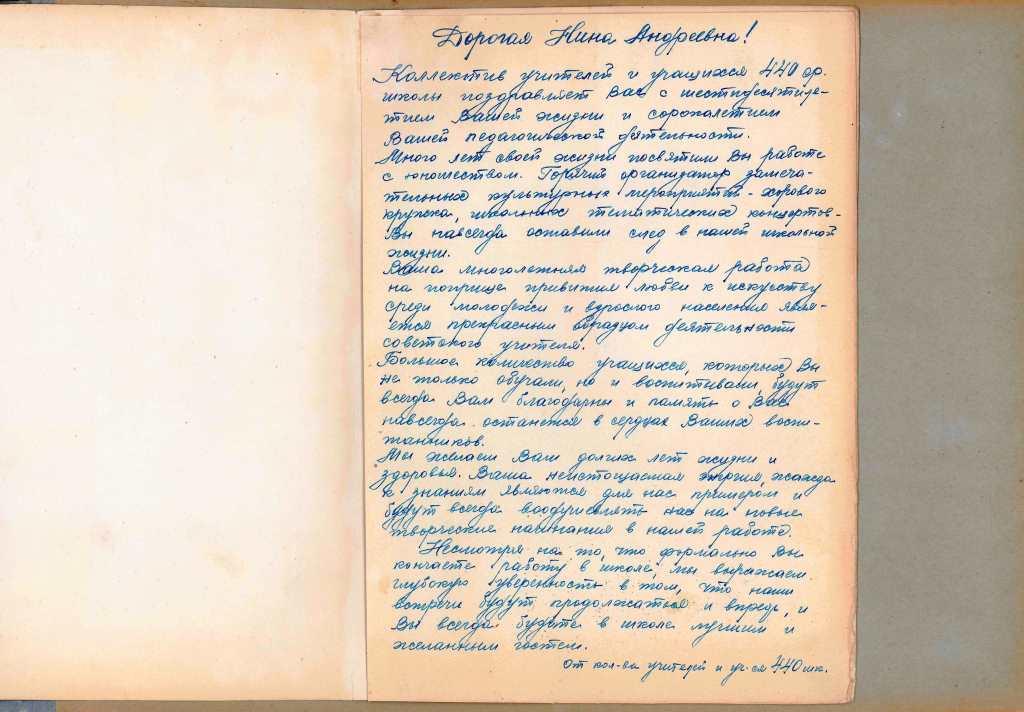 Дорогая Нина Андреевна!
Коллектив учителей и учащихся 440 ср.
школы поздравляет Вас с шестидесятиле-
тием Вашей жизни и сорокалетием
Вашей педагогической деятельности.
Много лет своей жизни посвятили Вы работе
с юношеством. Горячий организатор замеча-
тельных культурных мероприятий - хорового
кружка, школьных тематических концертов -
Вы навсегда оставили след в нашей школьной
жизни.
Ваша многолетняя творческая работа
на поприще привития любви к искусству
среди молодежи и взрослого населения явля-
ется прекрасным образцом деятельности
советского учителя.
Большое количество учащихся, которых Вы
не только обучали, но и воспитывали, будут
всегда Вам благодарны и память о Вас
навсегда останется в сердцах Ваших воспи-
танников.
Мы желаем Вам долгих лет жизни и
здоровья. Ваша неистощаемая энергия, жажда
к знаниям являются для нас примером и
будут всегда воодушевлять нас на новые
творческие начинания в нашей работе.
Несмотря на то, что формально Вы
кончаете работу в школе, мы выражаем
глубокую уверенность в том, что наши
встречи будут продолжаться и впредь, и
Вы всегда будете в школе лучшим и
желанным гостем.
От кол-ва учителей и уч-ся 440 шк.